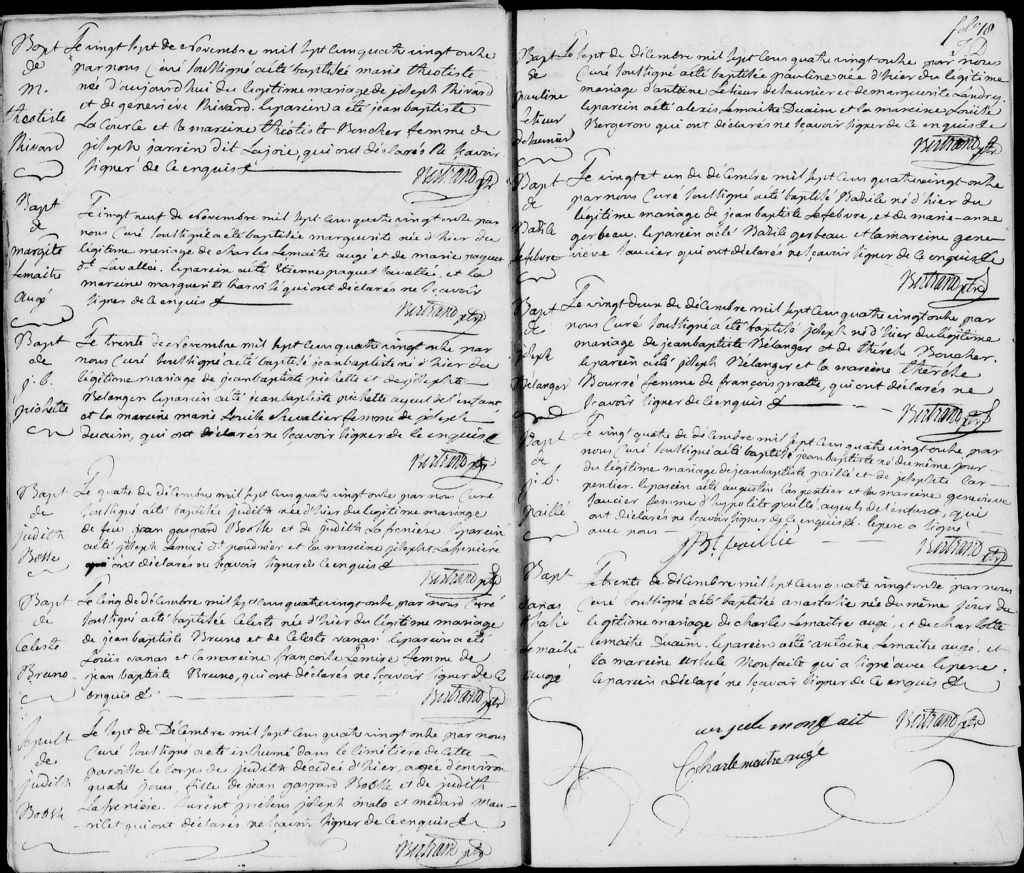 Bapt
de
M.
theotiste
Rivard
Le vingt sept de Novembre mil sept cens quatre vingt onze
par nous Curé soussigné a été baptisée marie theotiste
née d'aujourd'hui du légitime mariage de joseph Rivard
et de geneviève Rivard. le parein a été jean baptiste
La Course et la mareine theotiste Boucher femme de
joseph jarrein dit Lajoie, qui ont déclarés ne sçavoir
signer de ce enquis &
Bertrand ptre
Bapt
de
margite
Lemaitre
augé
Le vingt neuf de Novembre mil sept cens quatre vingt onze par
nous Curé soussigné a été baptisée marguerite née d'hier du
légitime mariage de charles Lemaitre augé et de marie paquet
dt Lavallée. le parein a été Etienne paquet Lavallée, et la
mareine marguerite qui ont déclarés ne sçavoir
signer de ce enquis &
Bertrand ptre
Bapt
de
j. b.
pichette
Le trente de Novembre mil sept cens quatre vingt onze par
nous Curé soussigné a été baptisé jean baptiste né d'hier du
légitime mariage de jean baptiste pichette et de josephte
Belanger le parein a été jean baptiste pichette ayeul de l'enfant
et la mareine marie Louise Chevalier femme de joseph
Duaim, qui ont déclarés ne sçavoir signer de ce enquis &
Bertrand ptre
Bapt
de
judith
Bosse
Le quatre de décembre mil sept cens quatre vingt onze par nous Curé
soussigné a été baptisée judith née d'hier du légitime mariage
de feu jean gaspard Bosse et de judith Lafreniere le parein
a été joseph Lemai dt poudrier et la mareine josephte Lafreniere
qui ont déclarés ne sçavoir signer de ce enquis &
Bertrand ptre
Bapt
de
Celeste
Bruno
Le cinq de décembre mil sept cens quatre vingt onze par nous Curé
soussigné a été baptisée Celeste née d'hier du légitime mariage
de jean baptiste Bruno et de Celeste vanas le parein a été
Louis vanas et la mareine françoise Lemire femme de
jean baptiste Bruno, qui ont déclarés ne sçavoir signer de ce
enquis &.
Bertrand ptre
sepult
de
judith
Bosse
Le sept de Décembre mil sept cens quatre vingt onze par nous
Curé soussigné a été inhumé dans le cimetière de cette
paroisse le corps de judith décédée d'hier, agée d'environ
quatre jours, fille de jean gaspard Bosse et de judith
Lafreniere. furent présens joseph malo et médard
qui ont déclarés ne sçavoir signer de ce enquis &
Bertrand ptre
folio 18
Bapt
de
pauline
Letieur
delaunier
Le sept de décembre mil sept cens quatre vingt onze par nous
Curé soussigné a été baptisée pauline née d'hier du légitime
mariage d'antoine Letieur delaunier et de marguerite Landry.
le parein a été alexis Lemaitre Duaim et la mareine Louise
Bergeron qui ont déclarés ne sçavoir signer de ce enquis &
Bertrand ptre
Bapt
de
Bazile
Lefebvre
Le vingt et un de décembre mil sept cens quatre vingt onze
par nous Curé soussigné a été baptisé Bazile né d'hier du
légitime mariage de jean baptiste Lefebvre, et de marie-anne
gerbeau. le parein a été Bazile gerbeau et la mareine gene-
vieve Saucier qui ont déclarés ne sçavoir signer de ce enquis &
Bertrand ptre
Bapt
de
joseph
Belanger
Le vingt deux de décembre mil sept cens quatre vingt onze par
nous Curé soussigné a été baptisé joseph né d'hier du légitime
mariage de jean baptiste Bélanger et de therese Boucher.
le parein a été joseph Bélanger et la mareine therese
Bourré femme de françois pratte, qui ont déclarés ne
sçavoir signer de ce enquis &
Bertrand ptre
Bapt
de
j. b.
paillé
Le vingt quatre de décembre mil sept cens quatre vingt onze, par
nous Curé soussigné a été baptisé jean baptiste né du même jour
du légitime mariage de jean baptiste paillé et de josephte Car-
pentier. le parein a été augustin Carpentier et la mareine genevieve
Saucier femme d'hypolite paillé, ayeuls de l'enfant, qui
ont déclarés ne sçavoir signer de ce enquis &. le pere a signé
avec nous
Bertrand ptre
Bapt
d'anas
thasie
Lemaitre
augé
Le trente de décembre mil sept cens quatre vingt onze par nous
Curé soussigné a été baptisée anastasie née du même jour du
légitime mariage de charles Lemaitre augé, et de charlotte
Lemaitre Duaim. le parein a été antoine Lemaitre augé, et
la mareine ursule Monfait qui a signé avec le pere.
le parein a déclaré ne sçavoir signer de ce enquis &
ursule monfait
Bertrand ptre
Charle meitre augé